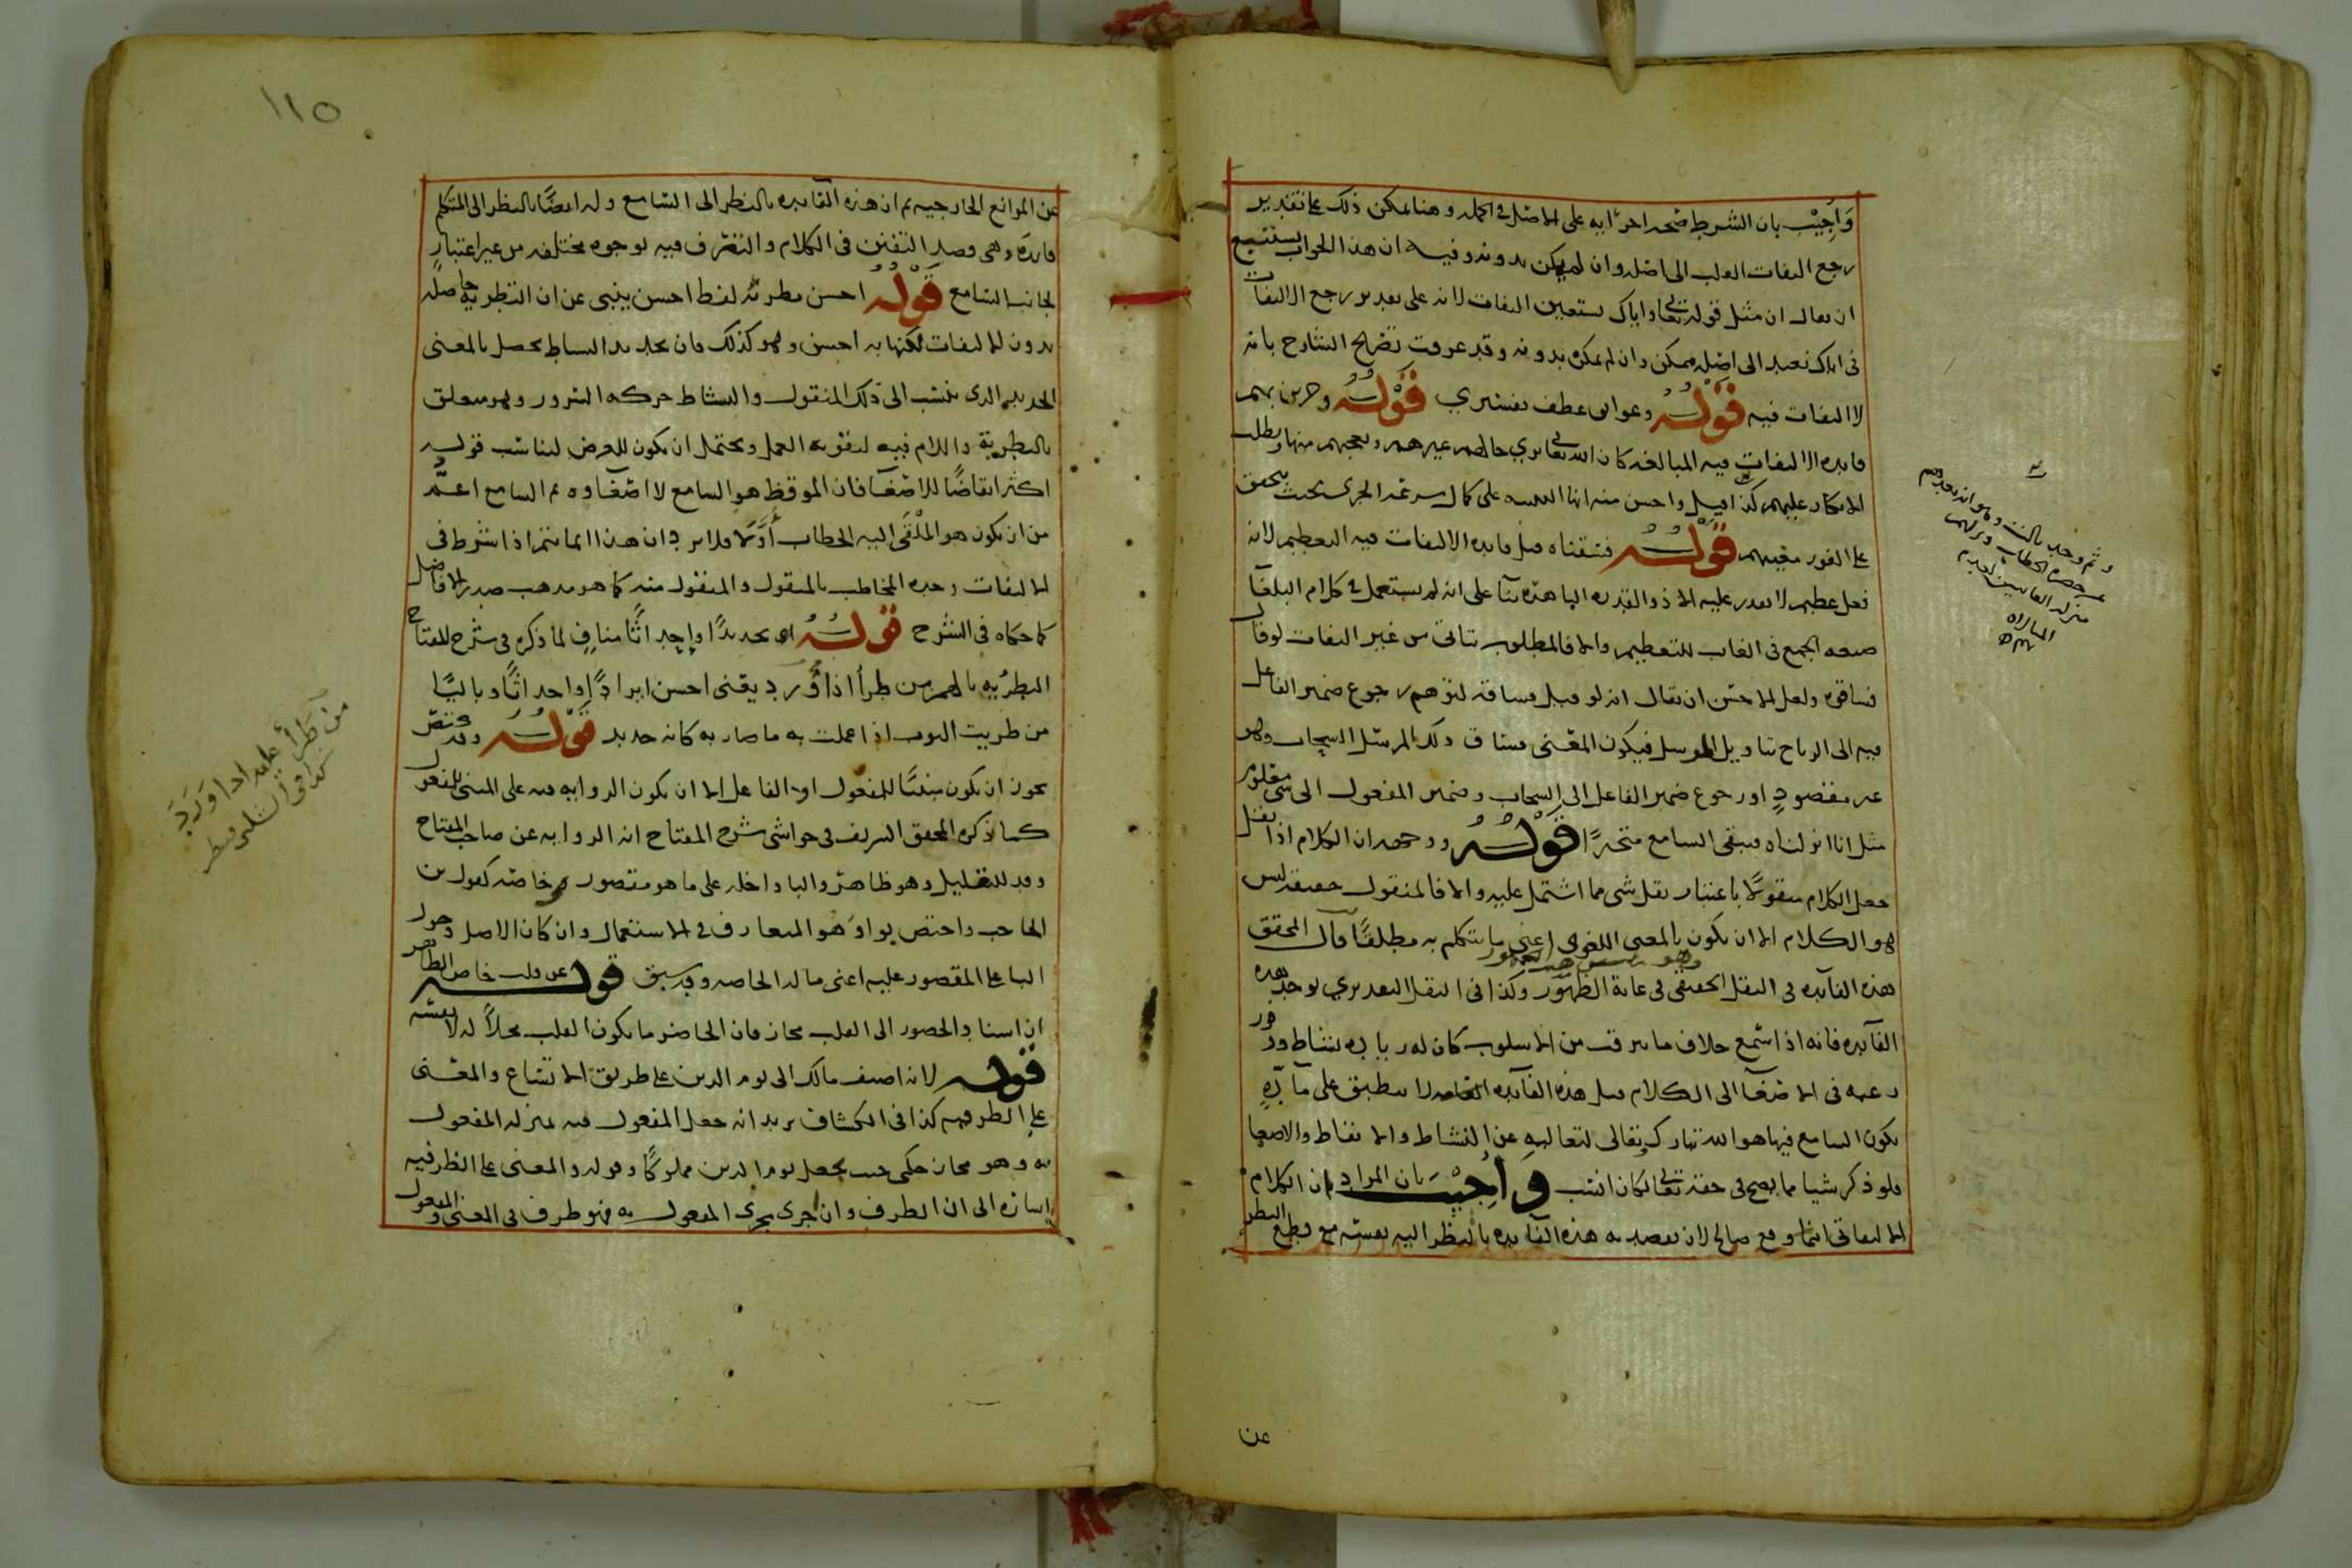 وأجيب بان الشرط صحه اجرائه على الاصل في الجمله وهنا يمكن ذلك على تقدير
رجع التفات القلب الى اصله وان لم يكن بدونه وفيه ان هذا الجواب يستتبع
ان يقال ان مثل قوله تعالى واياك نستعين التفات لانه على تقدير رجع الالتفات
في اياك نعبد الى اصله ممكن وان لم يمكن بدونه وقد عرفت تصريح الشارح بانه
لا التفات فيه قوله وعوايق عطف تفسيري قوله وجرين بهم
فايده الالتفات فيه المبالغه كان الله تعالى يري حالهم غيرهم ويعجبهم منها ويطلب
الانكار عليهم كذا قيل واحسن منه انها التنبيه على كمال سرعة الجري بحيث يتحقق
على الفور مغيبهم قوله فسقناه قيل فايده الالتفات فيه التعظيم لانه
فعل عظيم لا يقدر عليه الا ذو القدره الباهره بنآ على انه لم يستعمل في كلام البلغآ
صيغه الجمع في الغايب للتعظيم والا فالمطلوب يتاتى من غير التفات لو قال
فساقوه ولعل الاحسن ان يقال انه لو قيل فساقه لتوهم رجوع ضمير الفاعل
فيه الى الرياح بتاويل المرسل فيكون المعنى فساق ذلك المرسل السحاب وهو
غير مقصود او رجوع ضمير الفاعل الى السحاب وضمير المفعول الى شي معلوم
مثل انا انزلناه فيبقى السامع متحيرا قوله ووجهه ان الكلام اذا نقل
جعل الكلام منقولا باعتبار نقل شي مما اشتمل عليه والا فالمنقول حقيقه ليس
هو الكلام الا ان يكون بالمعنى اللغوي اعني ما يتكلم به مطلقا قال المحقق
هذه الفايده في النقل الحقيقي في غاية الظهور وكذا في النقل التقديري يوجد هذه
الفآيده فانه اذا سمع خلاف ما يترقب من الاسلوب كان له زياده نشاط ووفور
رغبه في الاصغآ الى الكلام قيل هذه الفآيده العامه لا تنطبق على مآدة
يكون السامع فيها هو الله تبارك وتعالى لتعاليه عن النشاط والايقاظ والاصغا
فلو ذكر شيا مما يصح في حقه تعالى لكان انسب وأجيب بان المراد ان الكلام
الالتفاتي انما وقع صالح لان يقصد به هذه الفايده بالنظر اليه نفسه مع قطع النظر
عن
وثم وجه بالنت وهو انه بعد بهم
عن حضرة الخطاب ونزلهم
منزله الغايبين لعدم
المبالاه
بهم
١١٥
عن الموانع الخارجيه ثم ان هذه الفايده بالنظر الى السامع وله ايضا بالنظر الى المتكلم
فايده وهي قصد التفنن في الكلام والتصرف فيه بوجوه مختلفه من غير اعتبار
لجانب السامع قوله احسن تطريه لفظ احسن ينبي عن ان التطريه حاصله
بدون الالتفات لكنها به احسن وهو كذلك فان تجديد النشاط يحصل بالمعنى
الجديد الذي ينسب الى ذلك المنقول والنشاط حركه السرور وهو متعلق
بالتطرية واللام فيه لتقويه العمل ويحتمل ان يكون للغرض ليناسب قوله
اكثر ايقاضا للاصغآ فان الموقظ هو السامع لا اصغاوه ثم السامع اعم
من ان يكون هو الملقى اليه الخطاب أولا فلا يرد ان هذا انما يتم اذا شرط في
الالتفات وحده المخاطب بالمنقول والمنقول منه كما هو مذهب صدر الافاضل
كما حكاه في الشرح قوله اي تجديدا واحداثا مناف لما ذكره في شرح المفتاح
التطريه بالهمز من طرأ اذا ورد يعني احسن ايرادا واحداثا وباليا
من طريت الثوب اذا عملت به ما صار به كانه جديد قوله وقد تختص
يجوز ان يكون مبنيا للمفعول او الفاعل الا ان يكون الروايه فيه على المبنى للمفعول
كما ذكره المحقق الشريف في حواشي شرح المفتاح انه الروايه عن صاحب المفتاح
وقد للتقليل وهو ظاهر والبا داخله على ما هو مقصور وخاصه كقول بن
الحاجب واختص بواو هو المتعارف في الاستعمال وان كان الاصل دخول
البا على المقصور عليه اعني ماله الخاصه وقد سبق قوله عن قلب حاضر الظاهر
ان اسناد الحضور الى القلب مجاز فان الحاضر ما يكون القلب محلا له لا نفسه
قوله لانه اضيف مالك الى يوم الدين على طريق الاتساع والمعنى
على الظرفيه كذا في الكشاف يريد انه جعل المفعول فيه بمنزله المفعول
به وهو مجاز حكمي حيث يجعل يوم الدين مملوكا وقوله والمعنى على الظرفيه
اشاره الى ان الظرف وان اجري مجرى المفعول به فهو ظرف في المعنى والمفعول
من طرأ عليه اذا ورد